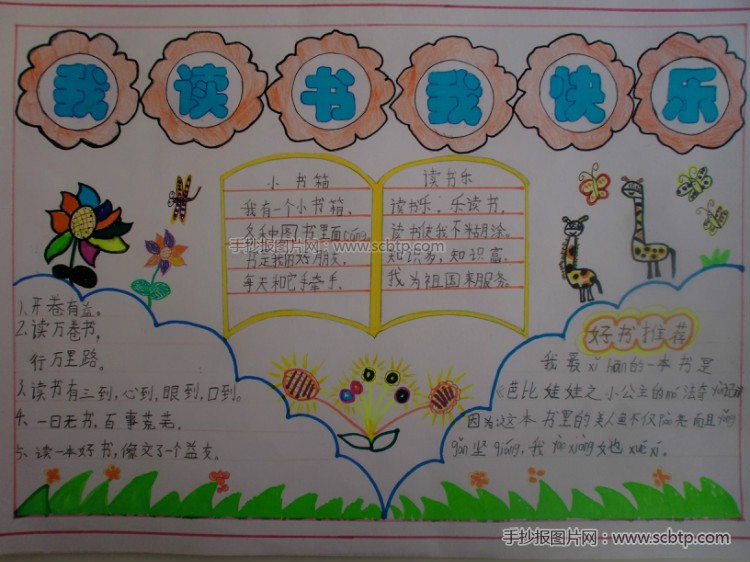 我读书我快乐
小书箱
我有一个小书箱，
各种图书里面cáng。
书是我的好朋友，
每天和它手牵手。
读书乐
读书乐，乐读书，
读书使我不糊涂。
知识多，知识富，
我为祖国来服务。
手抄报图片网：www.scbtp.com
1.开卷有益。
2.读万卷书，
行万里路。
3.读书有三到，心到，眼到，口到。
4.一日无书，百事荒芜。
5.读一本好书，像交了一个益友。
好书推荐
我最xǐ huan的一本书是
《芭比娃娃之小公主的mó法奇
因为这本书里的美人鱼不仅 亮而且yǒng
gǎn坚qiáng，我 xiàng她也xué xí.
手抄报图片网：www.scbtp.com